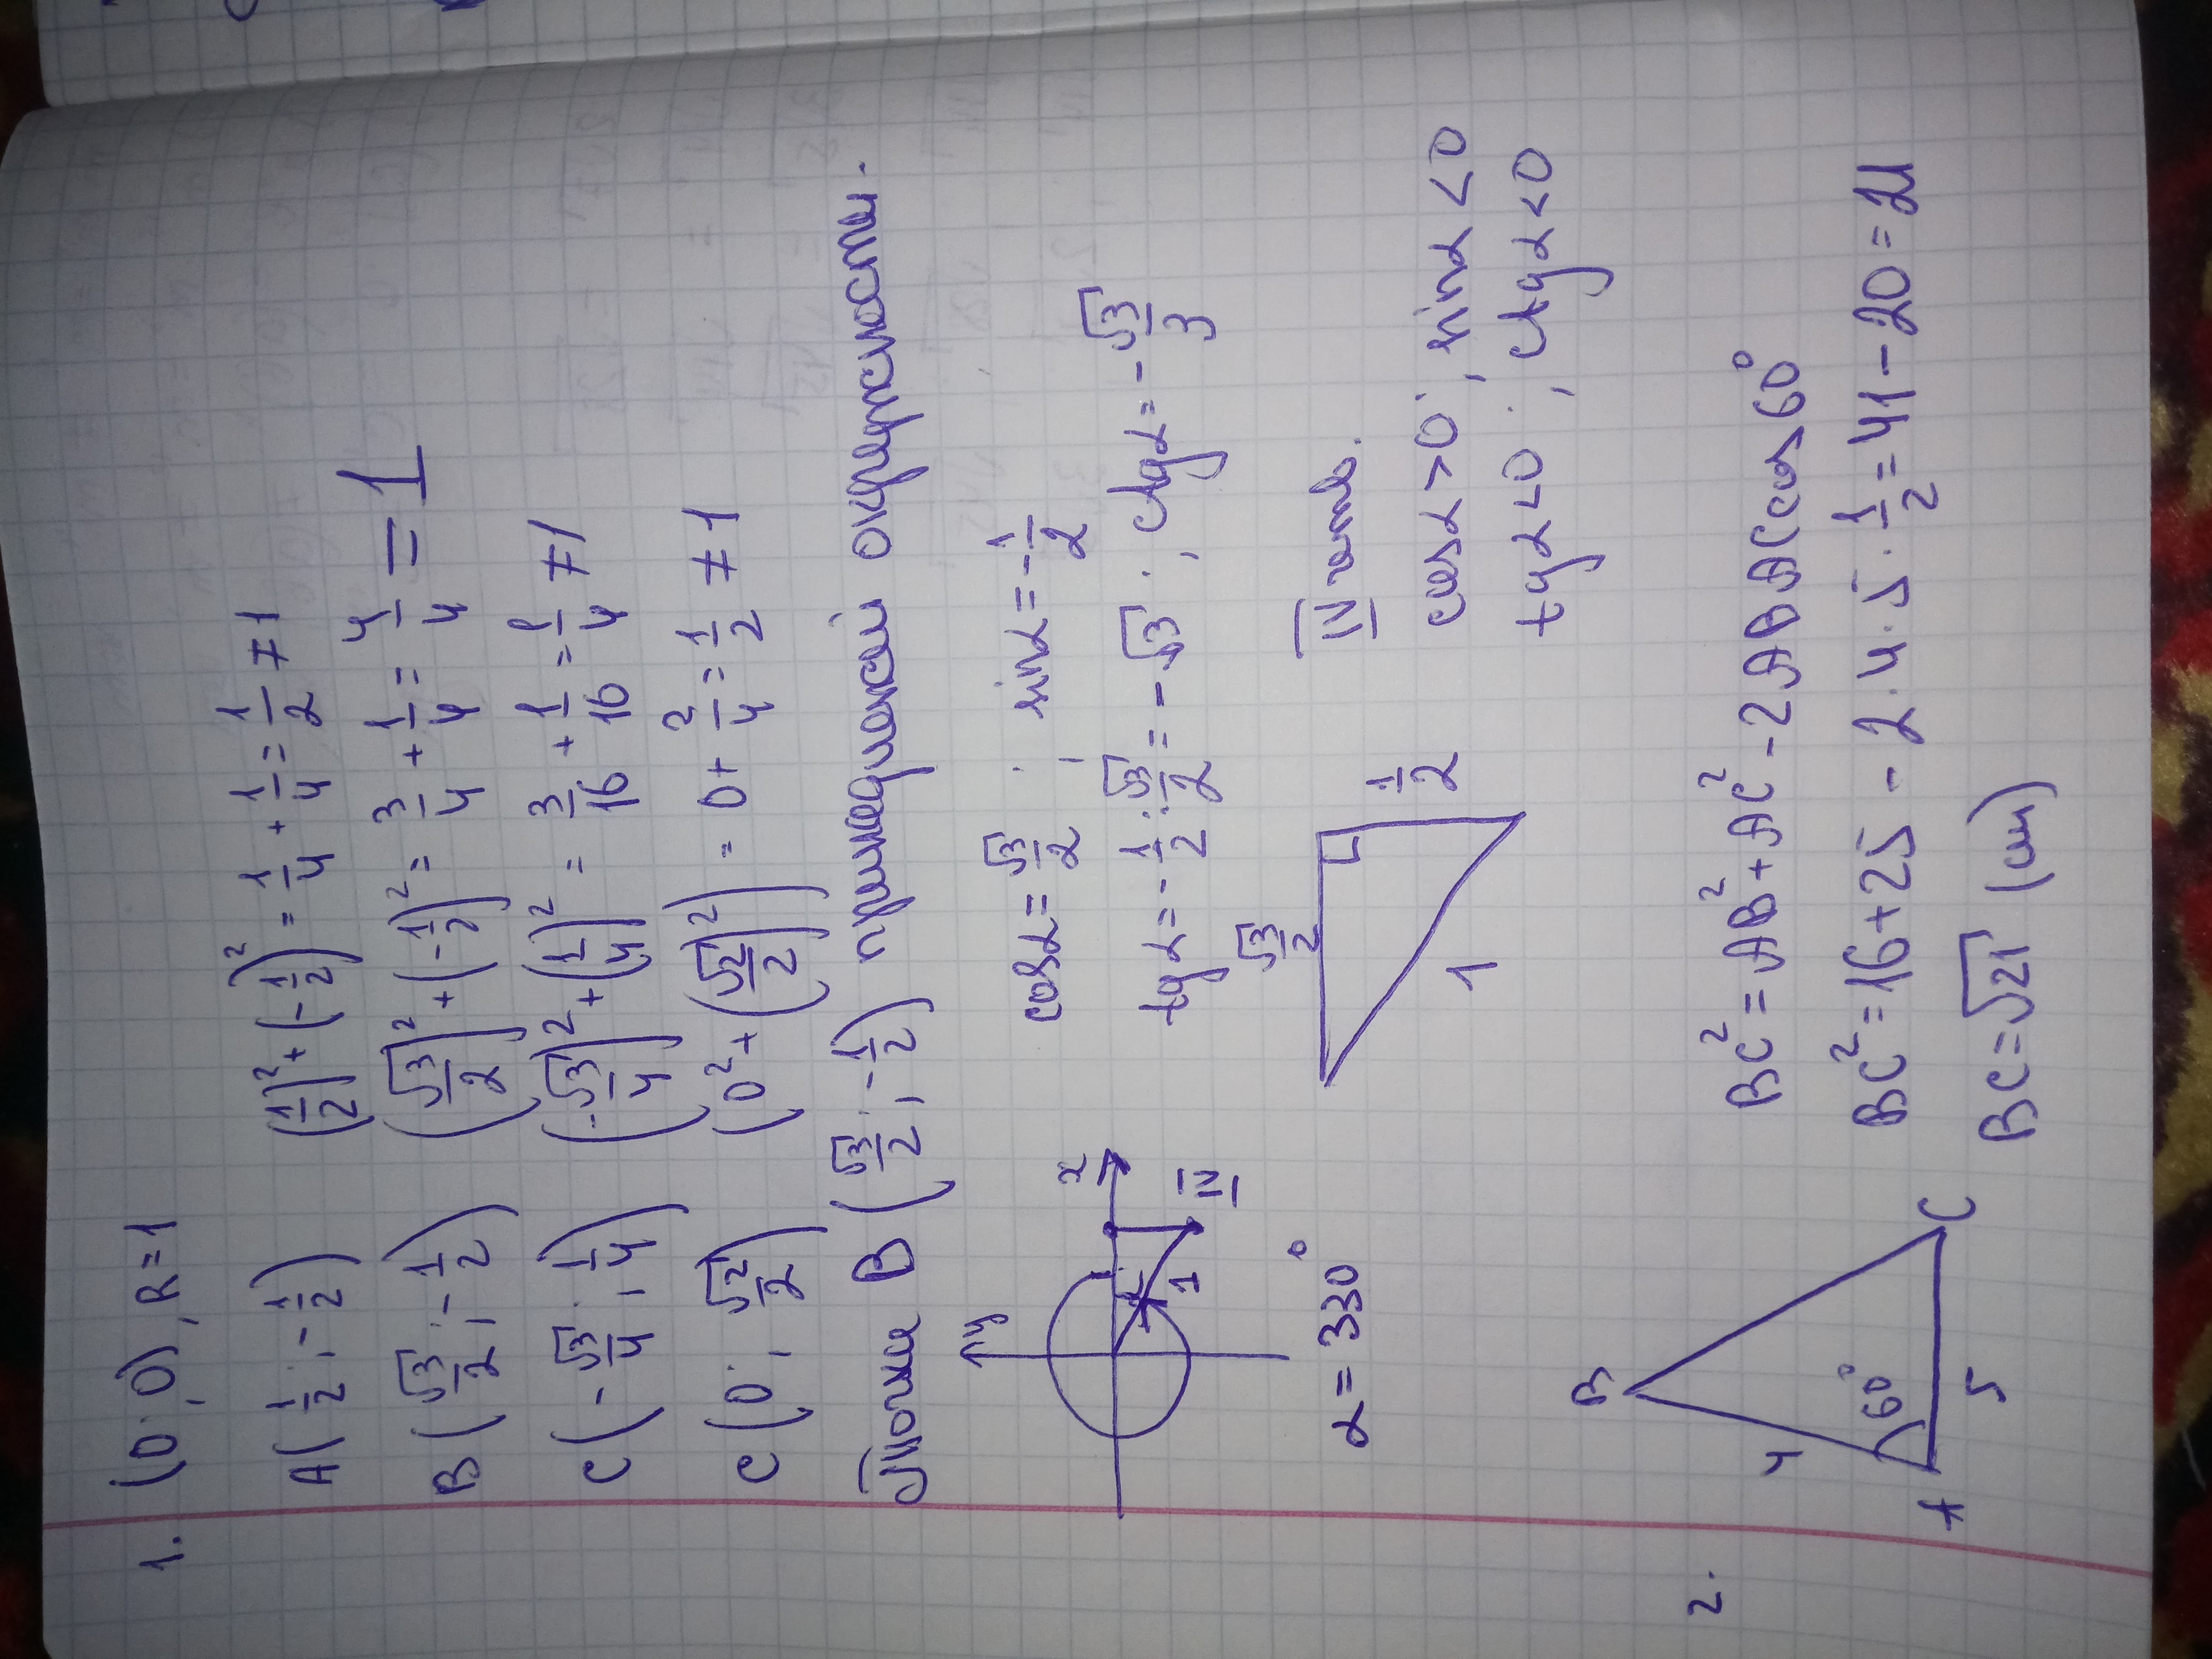 1. (0; 0), R=1
A(1/2; -1/2) (1/2)²+(-1/2)²=1/4+1/4=1/2≠1
B(√3/2; -1/2) (√3/2)²+(-1/2)²=3/4+1/4=4/4=1
C(-√3/4; 1/4) (-√3/4)²+(1/4)²=3/16+1/16=1/4≠1
C(0; √2/2) (0²+(√2/2)²)=0+2/4=1/2≠1
Точка B(√3/2; -1/2) принадлежит окружности.
y
x
1
IV
α=330°
cosα=√3/2; sinα=-1/2
tgα=-1/2:√3/2=-√3; ctgα=-√3/3
√3/2
1/2
1
IV четв.
cosα>0; sinα<0
tgα<0; ctgα<0
2.
B
4
60°
A
5
C
BC²=AB²+AC²-2ABACcos60°
BC²=16+25-2·4·5·1/2=41-20=21
BC=√21 (см)